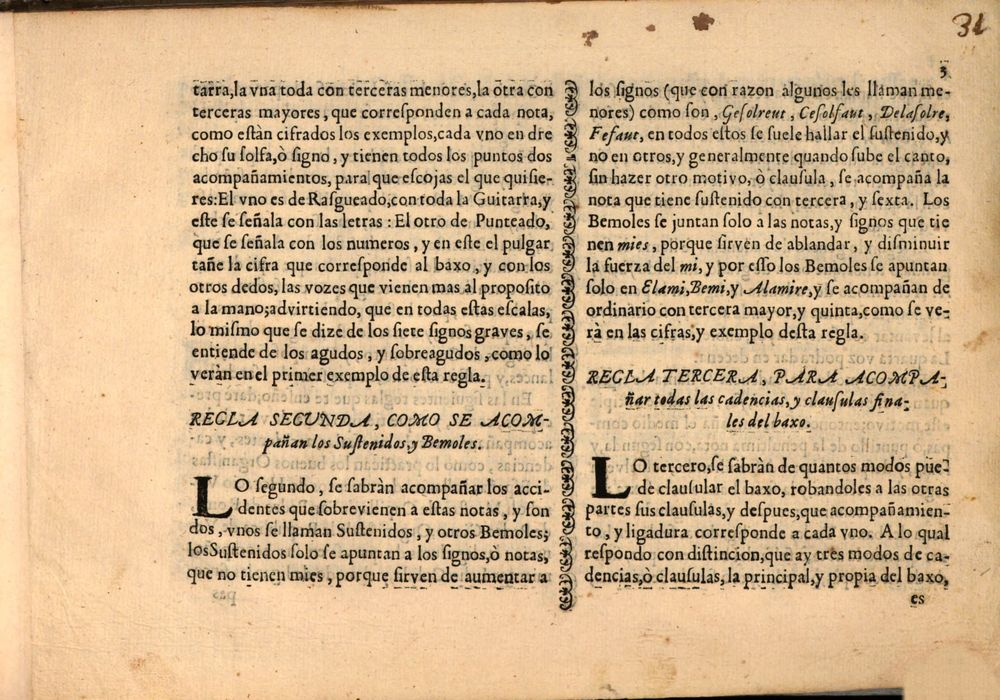 31
3
tarra,la vna toda con terceras menores,la otra con
terceras mayores, que corresponden a cada nota,
como estàn cifrados los exemplos,cada vno en dre
cho su solfa,ò signo, y tienen todos los puntos dos
acompañamientos, para que escojas el que quisie-
res:El vno es de Rasgueado,con toda la Guitarra,y
este se señala con las letras : El otro de Punteado,
que se señala con los numeros, y en este el pulgar
tañe la cifra que corresponde al baxo, y con los
otros dedos, las vozes que vienen mas al proposito
a la mano;advirtiendo, que en todas estas escalas,
lo mismo que se dize de los siete signos graves, se
entiende de los agudos, y sobreagudos, como lo
veràn en el primer exemplo de esta regla.
REGLA SEGUNDA, COMO SE ACOM-
pañan los Sustenidos,y Bemoles.
LO segundo, se sabràn acompañar los acci-
dentes que sobrevienen a estas notas, y son
dos, vnos se llaman Sustenidos, y otros Bemoles;
los Sustenidos solo se apuntan a los signos,ò notas,
que no tienen mies, porque sirven de aumentar a
los signos (que con razon algunos les llaman me-
nores) como son, Gesolreut, Cesolfaut, Delasolre,
Fefaut, en todos estos se suele hallar el sustenido,y
no en otros,y generalmente quando sube el canto,
sin hazer otro motivo, ò clausula, se acompaña la
nota que tiene sustenido con tercera, y sexta. Los
Bemoles se juntan solo à las notas,y signos que tie
nen mies, porque sirven de ablandar, y disminuir
la fuerza del mi, y por esso los Bemoles se apuntan
solo en Elami,Bemi,y Alamire,y se acompañan de
ordinario con tercera mayor,y quinta,como se ve-
rà en las cifras,y exemplo desta regla.
REGLA TERCERA, PARA ACOMPA-
ñar todas las cadencias,y clausulas fina-
les del baxo.
LO tercero,se sabràn de quantos modos pue-
de clausular el baxo, robandoles a las otras
partes sus clausulas,y despues,que acompañamien-
to, y ligadura corresponde a cada vno. A lo qual
respondo con distincion,que ay tres modos de ca-
dencias,ò clausulas, la principal,y propia del baxo,
es